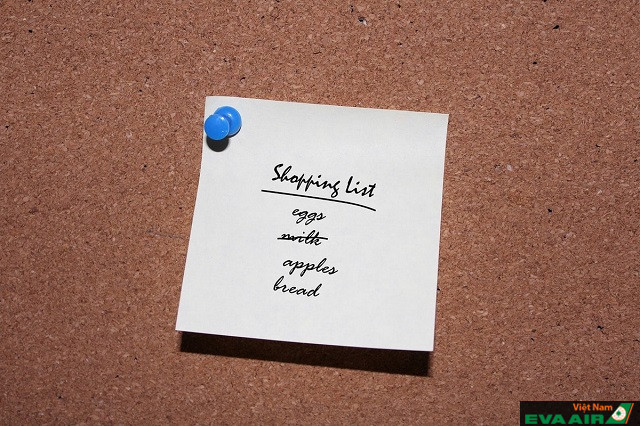 Shopping List
eggs
milk
apples
bread
Việt Nam
EVA AIR